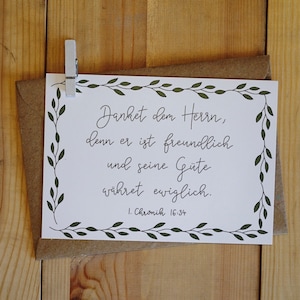 Danket dem Herrn,
denn er ist freundlich
und seine Güte
währet ewiglich.
1. Chronik 16:34